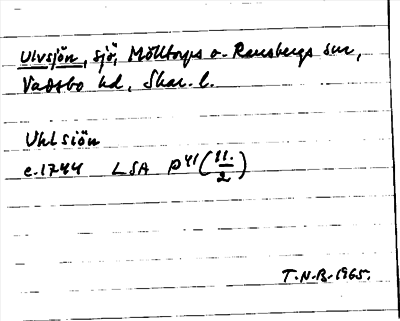 Ulvsjön, sjö, Mölltorps o. Ransbergs snr,
Vadsbo hd, Skar. l.
Uhlsiön
c. 1744 LSA P41 (11./2)
T.N.B. 1965.